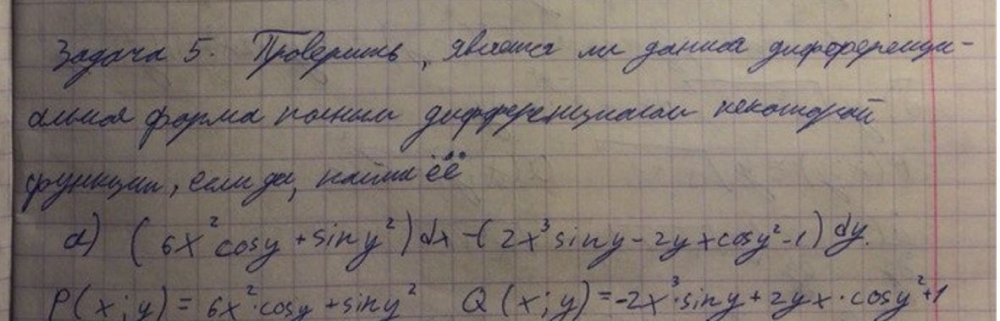 Задача 5. Проверить, является ли данная дифференци-
альная форма полным дифференциалом некоторой
функции, если да, найти её
а) (6x² cosy + siny²) dx - (2x³ siny - 2yx cosy² - 1) dy.
P(x; y) = 6x² · cosy + siny² Q(x; y) = -2x³ · siny + 2yx · cosy² + 1